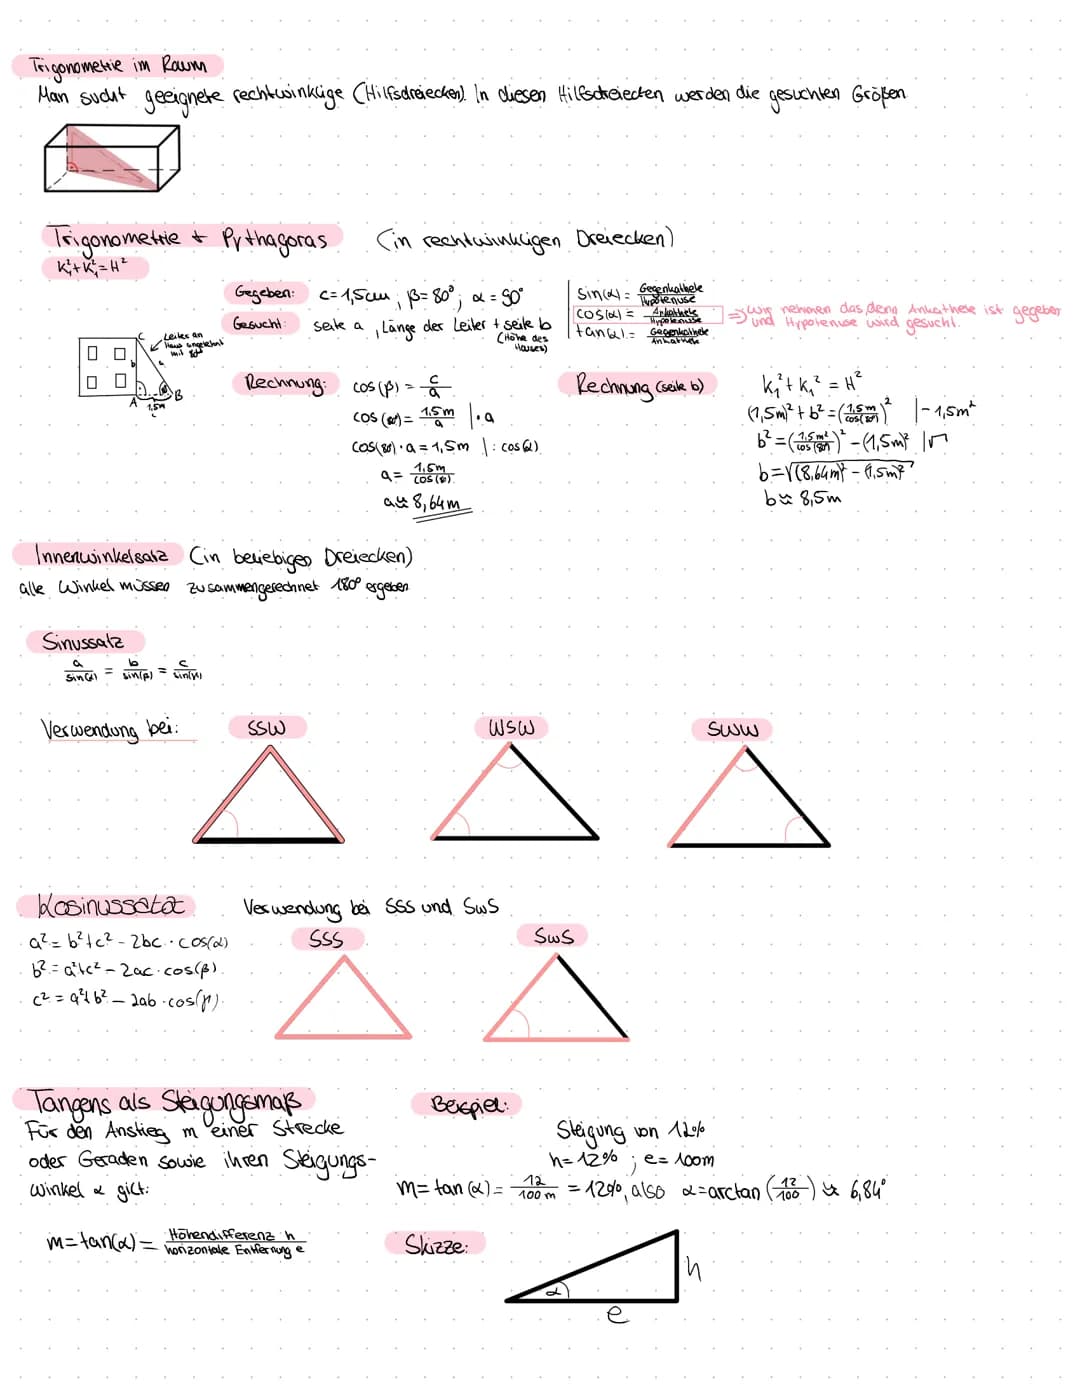 Trigonometrie im Raum
Man sucht geeignete rechtwinklige (Hilfsdreiecken). In diesen Hilfsdreiecken werden die gesuchten Größen
Trigonometrie + Pythagoras (in rechtwinkligen Dreiecken)
K₁²+K₁²=H²
Gegeben: c=1,5cm, β=80°; α=90°
Gesucht: seite a, Länge der Leiter + seite b
(Höhe des
Hauses)
sin(α) = Gegenkathete / Hypotenuse
cos(α) = Ankathete / Hypotenuse
tan(α) = Gegenkathete / Ankathete
⇒ wir nehmen das, denn Ankathete ist gegeben
und Hypotenuse wird gesucht.
C
Leiter an
Haus angelehnt
mit 80°
b
a
A
B
1,5m
c
Rechnung: cos(β) = c/a
cos(80°) = 1,5m/a |·a
cos(80)·a = 1,5m |: cos(α)
a = 1,5m/cos(80)
a≈ 8,64m
Rechnung (seite b)
K₁²+K₁² = H²
(1,5m)²+b² = (1,5m/cos(80°))² |- 1,5m²
b² = (1,5m²/cos(80°))² - (1,5m)² |√
b=√(8,64m)² - (1,5m)²
b≈ 8,5m
Innenwinkelsatz (in beliebigen Dreiecken)
alle Winkel müssen zusammengerechnet 180° ergeben
Sinussatz
a/sin(α) = b/sin(β) = c/sin(γ)
Verwendung bei: SSW WSW SWW
Kosinussatz Verwendung bei SSS und SWS
a² = b²+c² - 2bc · cos(α)
b² = a²+c² - 2ac · cos(β)
c² = a²+b² - 2ab · cos(γ)
SSS SWS
Tangens als Steigungsmaß
Für den Anstieg m einer Strecke
oder Geraden sowie ihren Steigungs-
winkel α gilt:
m=tan(α) = Höhendifferenz h / horizontale Entfernung e
Beispiel:
Steigung von 12%
h=12% ; e=100m
m=tan(α) = 12/100m = 12%, also α=arctan(12/100) ≈ 6,84°
Skizze:
α
h
e